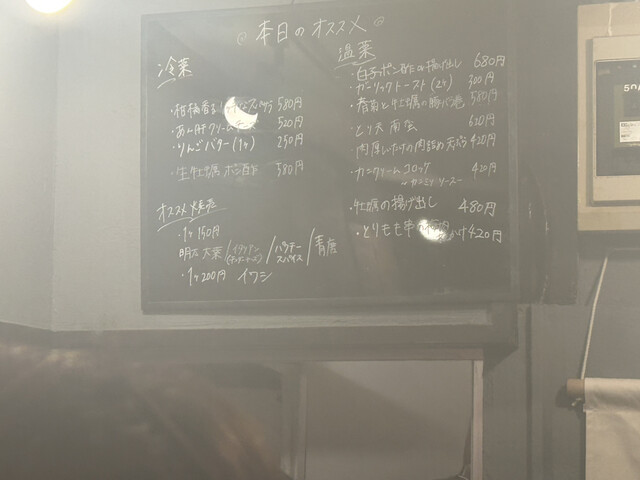 本日のオススメ
冷菜
・柑橘香る 580円
・あん肝クリームチーズ 520円
・りんごバター(1ヶ) 250円
・生牡蠣 ポン酢 580円
オススメ焼売
・1ヶ150円
明太 大葉/イタリアン/パクチースパイス/青唐
・1ヶ200円 イワシ
温菜
・白子ポン酢or揚げ出し 680円
・ガーリックトースト(2ヶ) 300円
・春菊と牡蠣の 580円
・とり天南蛮 620円
肉厚しいたけの肉詰め天ぷら 420円
・カニクリームコロッケ 420円
〜カニミソソース〜
・牡蠣の揚げ出し 480円
・とりもも串の 420円